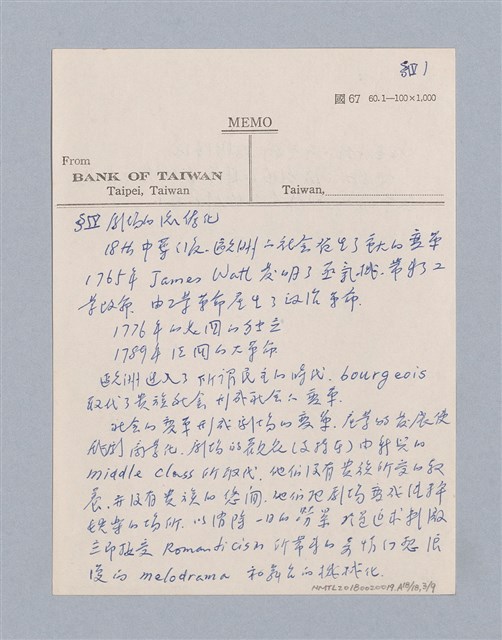 §Ⅳ 1
國 67 60.1—100×1,000
MEMO
From
BANK OF TAIWAN
Taipei, Taiwan
Taiwan,
§Ⅳ 劇場的流俗化
18世中葉以後、歐洲的社会發生了重大的變革
1765年 James Watt 發明了蒸氣機、帶來了工
業改革、由工業革命產生了政治革命、
1776年的美國的独立
1789年法國的大革命
歐洲進入了所謂民主的時代、bourgeois
取代了貴族社会 形成社会的變革、
社会的變革形成劇場的變革、產業的發展使
戲劇商業化、劇場的觀众(支持者)由新興的
middle class 所取代、他們沒有貴族所受的教
養、並沒有貴族的悠閒、他們把劇場變成
的場所、以消除一日的勞累 於是追求刺激
立即接受 Romanticism 所帶來的
漫的 melodrama 和舞台的機械化、
NMTL20180020019